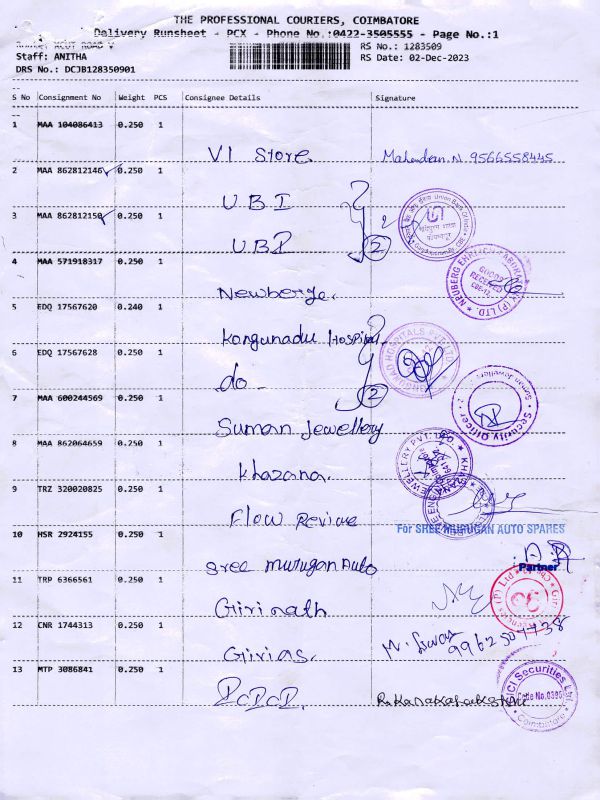 THE PROFESSIONAL COURIERS, COIMBATORE
Delivery Runsheet - PCX - Phone No.:0422-3505555 - Page No.:1
RS No.: 1283509
Staff: ANITHA
RS Date: 02-Dec-2023
DRS No.: DCJB128350901
S No Consignment No Weight PCS Consignee Details Signature
1 MAA 104086413 0.250 1
VI Store Mahendran.N 9566558445
2 MAA 862812146 0.250 1
UBI
3 MAA 862812150 0.250 1
UBI 2
4 MAA 571918317 0.250 1
Newberge.
5 EDQ 17567620 0.240 1
Kongunadu Hospital.
6 EDQ 17567628 0.250 1
do - 2
7 MAA 600244569 0.250 1
Suman Jewellery
Security Officer
8 MAA 862064659 0.250 1
Khazana.
9 TRZ 320020825 0.250 1
Flow Review
For SREE MURUGAN AUTO SPARES
10 HSR 2924155 0.250 1
Sree Murugan Auto
Partner
11 TRP 6366561 0.250 1
Girinath
12 CNR 1744313 0.250 1
Girias. 9962507738
13 MTP 3086841 0.250 1
ICICI.
ICICI Securities Ltd.
Coimbatore